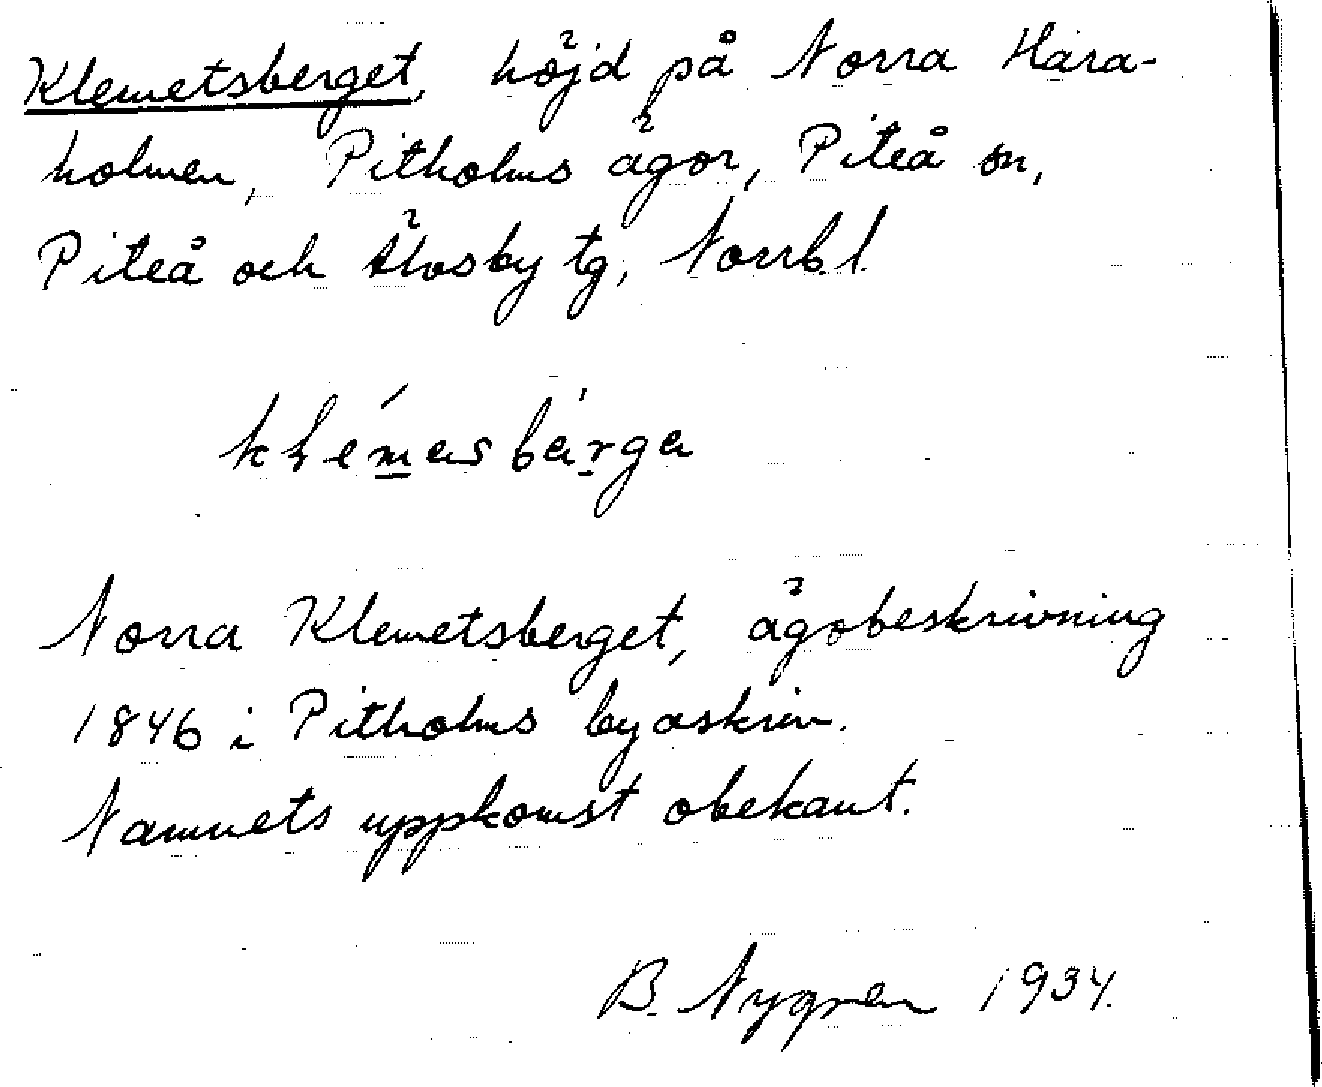 Klemetsberget, höjd på Norra Hara-
holmen, Pitholms ägor, Piteå sn,
Piteå och Älvsby tg, Norrb. l.
klemasbärga
Norra Klemetsberget, ägobeskrivning
1846 i Pitholms byaskrin.
Namnets uppkomst obekant.
B. Nygren 1934.